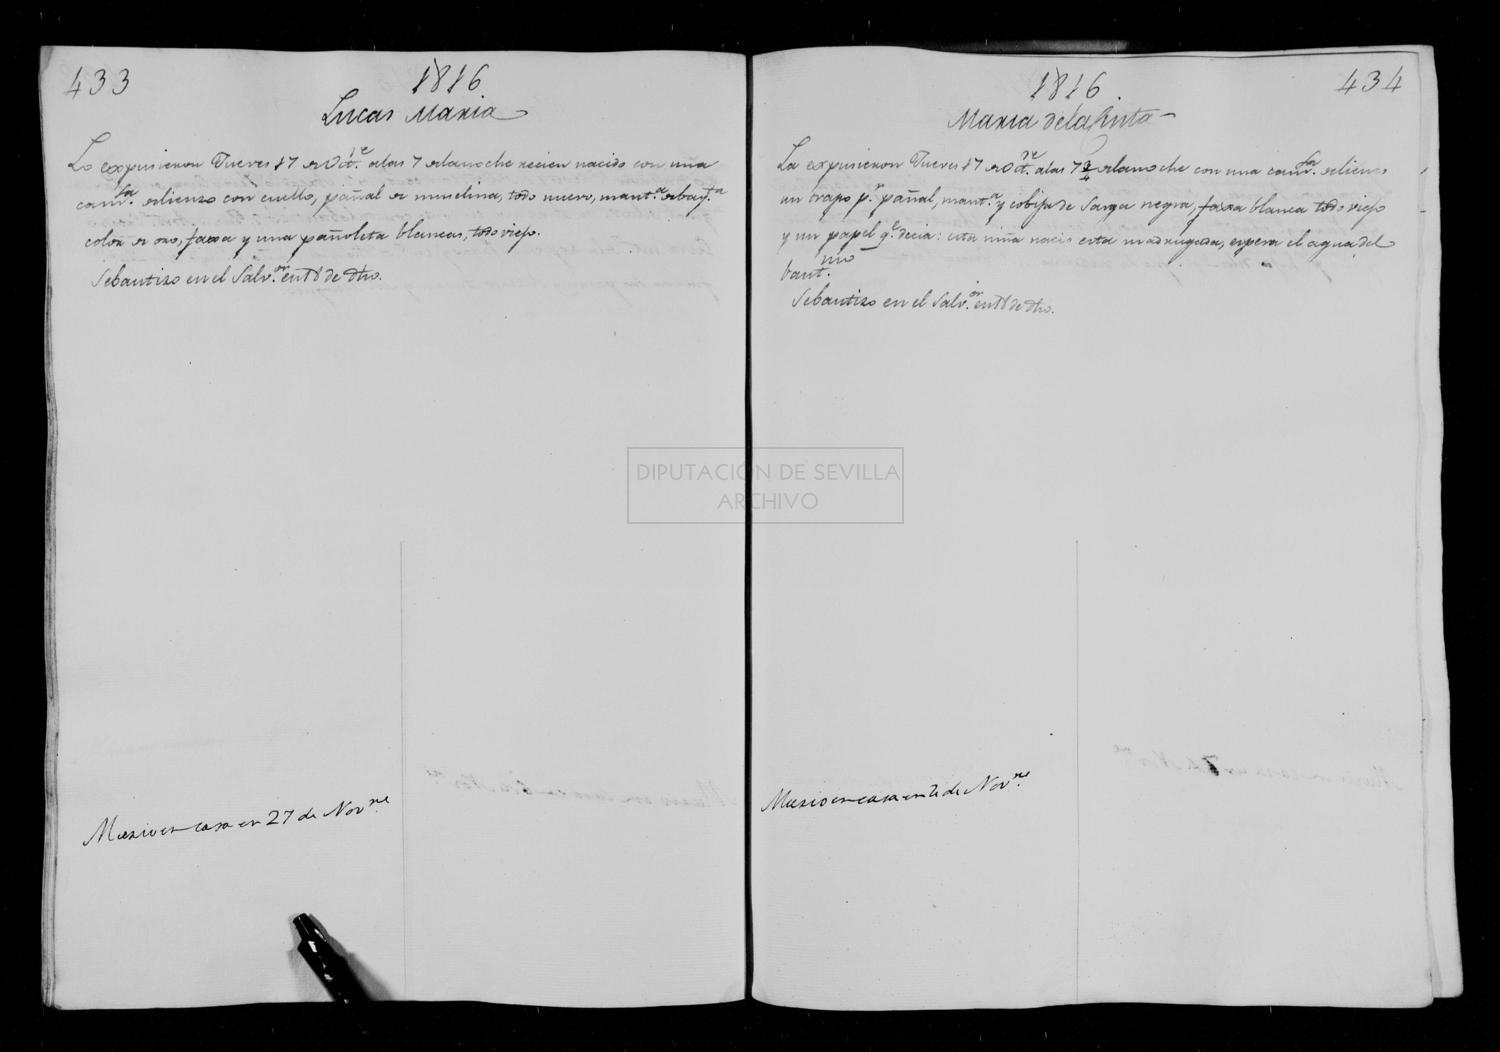 433
1816
Lucas Maria
Lo expusieron Jueves 17 de Oct.re a las 7 de la noche recien nacido con una
cam.sa de lienzo con cuello, pañal de muselina, todo nuevo, mant.a de bay.ta
color de oro, faxa y una pañoleta blancas, todo viejo.
Se bautizo en el Salv.or en 18 de dho.
Murio en casa en 27 de Nov.re
434
1816
Maria de la Cinta
La expusieron Jueves 17 de Oct.re a las 7 3/4 de la noche con una cam.sa de lienzo
un trapo p.r pañal, mant.a y cobija de Sarga negra, faxa blanca todo viejo
y un papel q.e decia: esta niña nacio esta madrugada, espera el agua del
baut.mo
Se bautizo en el Salv.or en 18 de dho.
Murio en casa en de Nov.re
DIPUTACIÓN DE SEVILLA
ARCHIVO